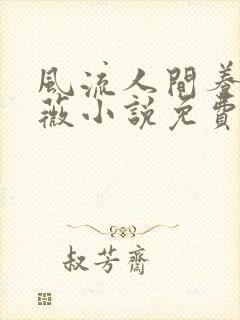 風流人間養
薇小說免費
叔芳齋